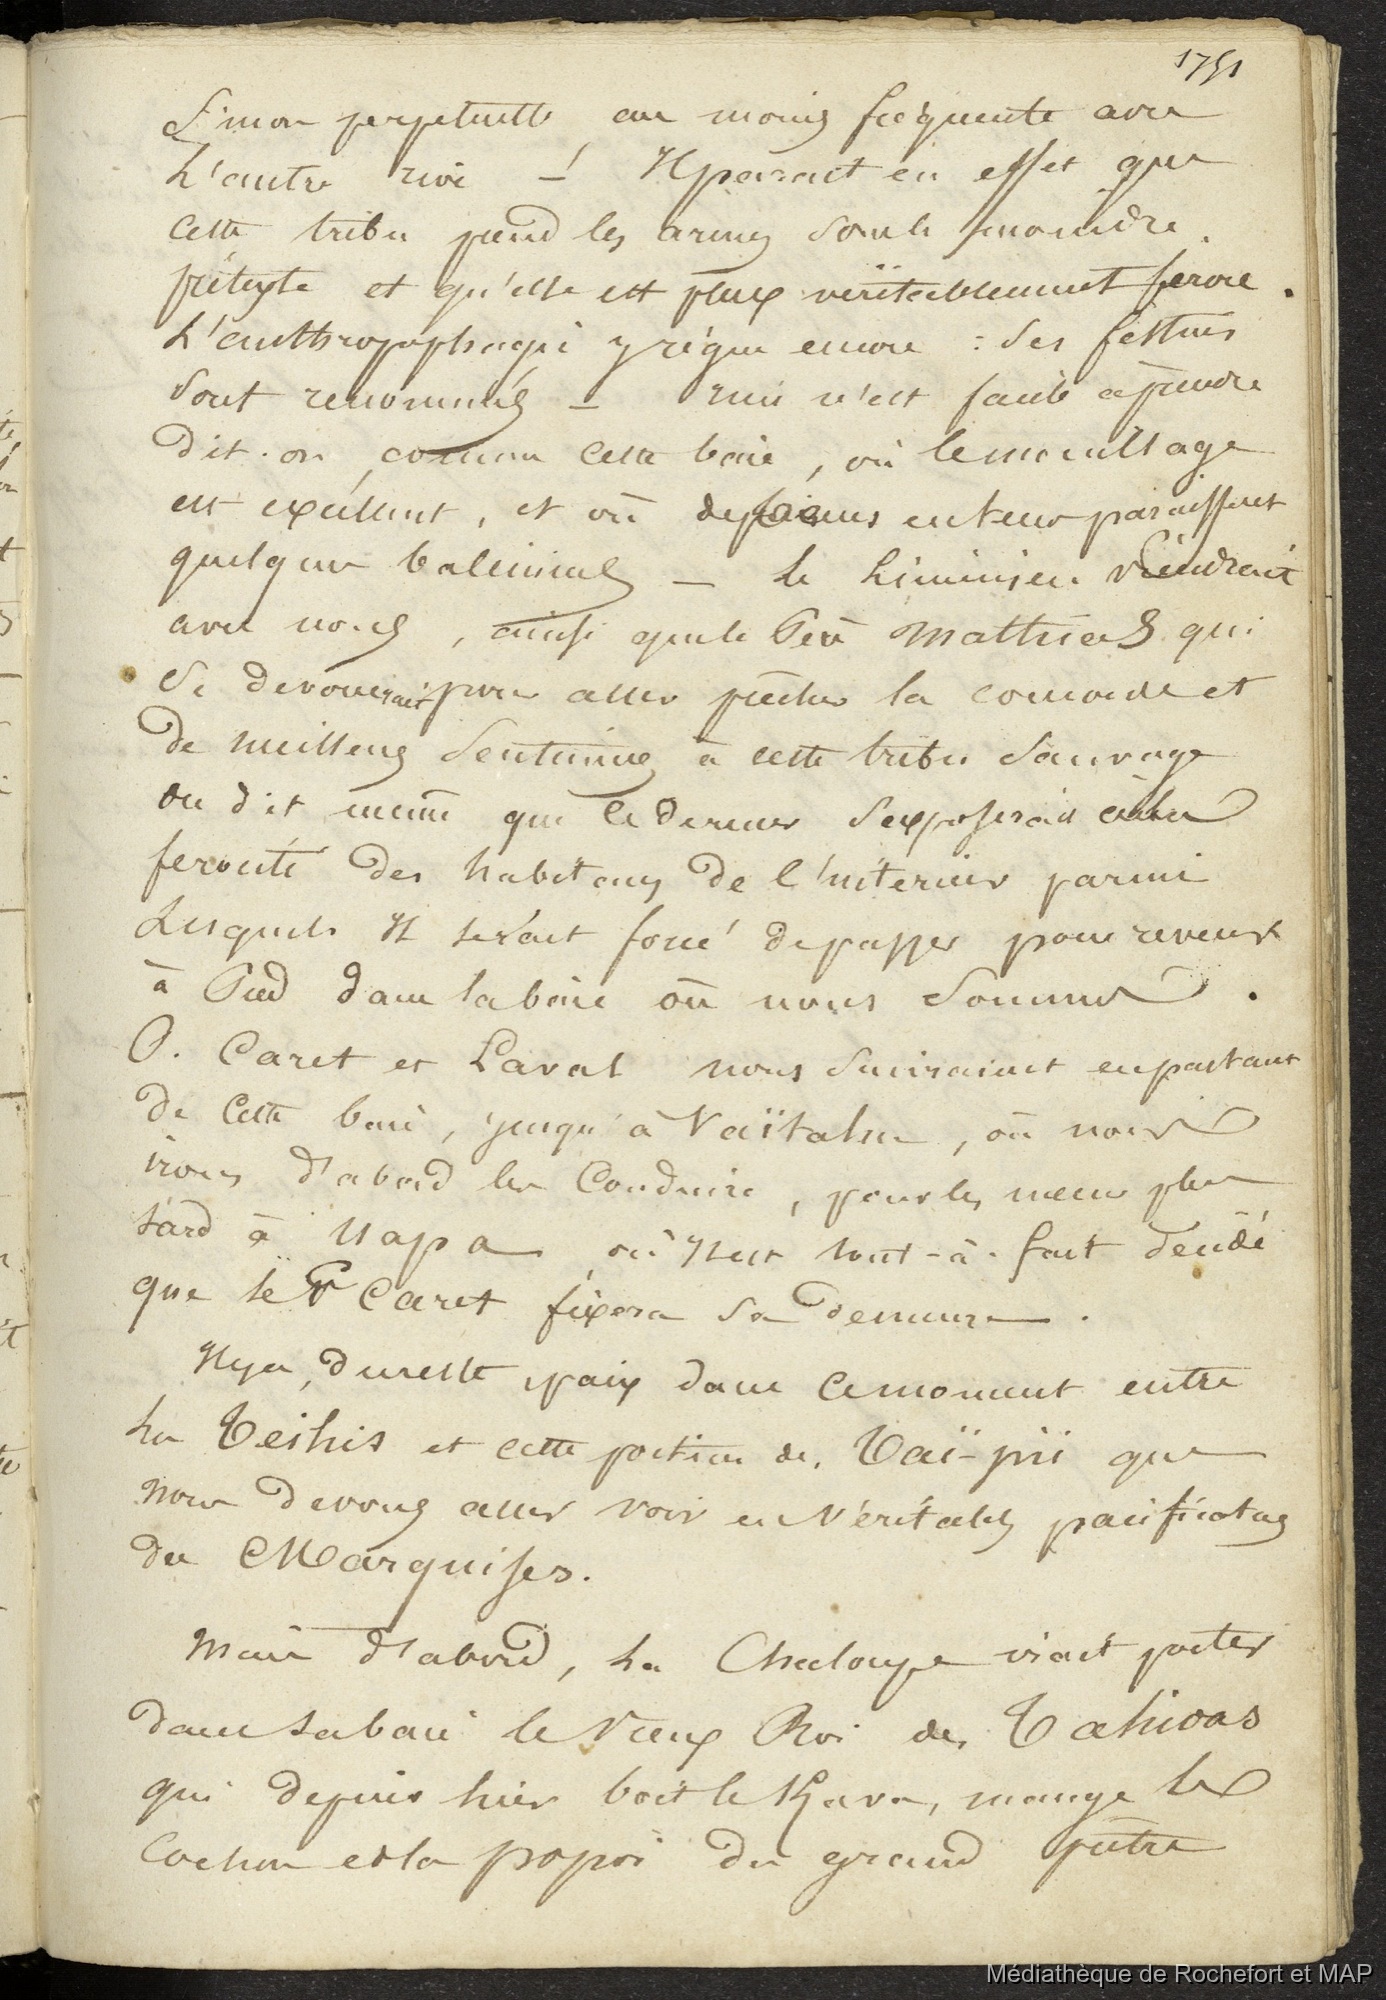 1751
Sinon perpetuelle au moins fréquente avec
L'autre rive — Il parait en effet que
cette tribu prend les armes sous le moindre
prétexte et qu'elle est plus véritablement feroce.
L'anthropophagie y règne encore : des festins
sont renommés — rien n'est facile à prendre
dit-on comme cette baie, où le mouillage
est excellent, et où de tems en tems paraissent
quelques baleiniers — le viendrait
avec nous, ainsi que le Père Mathias qui
se devouerait pour aller prêcher la concorde et
de meilleurs sentimens à cette tribu sauvage
on dit même que ce dernier s'exposerait à la
ferocité des habitans de l'intérieur parmi
Lesquels Il serait forcé de passer pour revenir
à Pied dans la baie où nous sommes.
O. Caret et Laval nous suivraient en partant
de Cette baie, jusqu'à Vaïtahu, où nous
irons d'abord les Conduire, pour les mener plus
tard à Uapa où Il est tout-à-fait décidé
que le P Caret fixera sa demeure.
Il y a, du reste, paix dans ce moment entre
les Teihis et cette portion des Taï-piï que
nous devons aller voir en véritables pacificateurs
des Marquises.
Mais d'abord, la Chaloupe vient porter
dans sa baie le vieux Roi des Tahioas
qui depuis hier boit le Kava, mange le
Cochon et la popoi du grand prêtre
Médiathèque de Rochefort et MAP